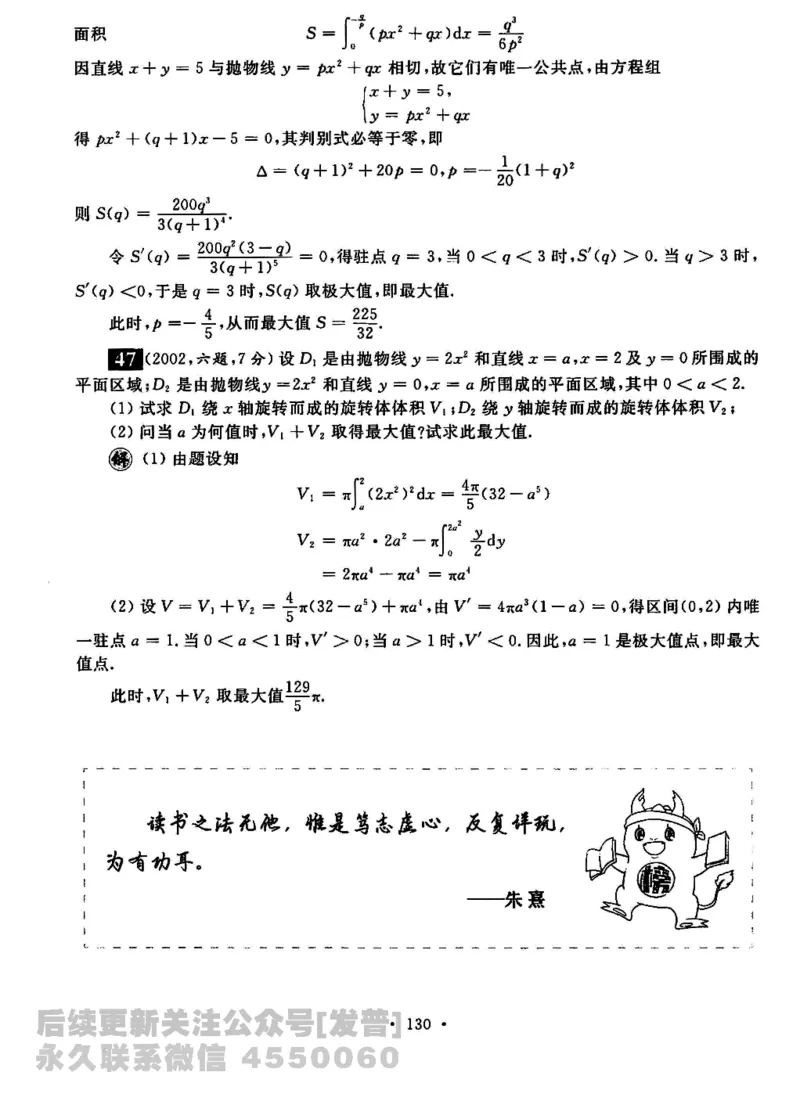 面积 S = ∫₀^{-q/p} (px² + qx)dx = q³/6p²
因直线 x + y = 5 与抛物线 y = px² + qx 相切,故它们有唯一公共点,由方程组
{x + y = 5,
y = px² + qx
得 px² + (q + 1)x − 5 = 0,其判别式必等于零,即
Δ = (q + 1)² + 20p = 0, p = − 1/20 (1 + q)²
则 S(q) = 200q³/3(q + 1)⁴.
令 S′(q) = 200q²(3 − q)/3(q + 1)⁵ = 0,得驻点 q = 3,当 0 < q < 3 时,S′(q) > 0. 当 q > 3 时,
S′(q) < 0,于是 q = 3 时,S(q) 取极大值,即最大值.
此时,p = − 4/5,从而最大值 S = 225/32.
47 (2002,六题,7 分) 设 D₁ 是由抛物线 y = 2x² 和直线 x = a,x = 2 及 y = 0 所围成的
平面区域;D₂ 是由抛物线 y = 2x² 和直线 y = 0,x = a 所围成的平面区域,其中 0 < a < 2.
(1) 试求 D₁ 绕 x 轴旋转而成的旋转体体积 V₁;D₂ 绕 y 轴旋转而成的旋转体体积 V₂;
(2) 问当 a 为何值时,V₁ + V₂ 取得最大值?试求此最大值.
解 (1) 由题设知
V₁ = π∫ₐ² (2x²)²dx = 4π/5 (32 − a⁵)
V₂ = πa² · 2a² − π∫₀^{2a²} y/2 dy
= 2πa⁴ − πa⁴ = πa⁴
(2) 设 V = V₁ + V₂ = 4/5 π(32 − a⁵) + πa⁴,由 V′ = 4πa³(1 − a) = 0,得区间(0,2) 内唯
一驻点 a = 1. 当 0 < a < 1 时,V′ > 0;当 a > 1 时,V′ < 0. 因此,a = 1 是极大值点,即最大
值点.
此时,V₁ + V₂ 取最大值 129/5 π.
读书之法无他,惟是笃志虚心,反复详玩,
为有功耳。
——朱熹
榜
· 130 ·
后续更新关注公众号[发普]
永久联系微信 4550060